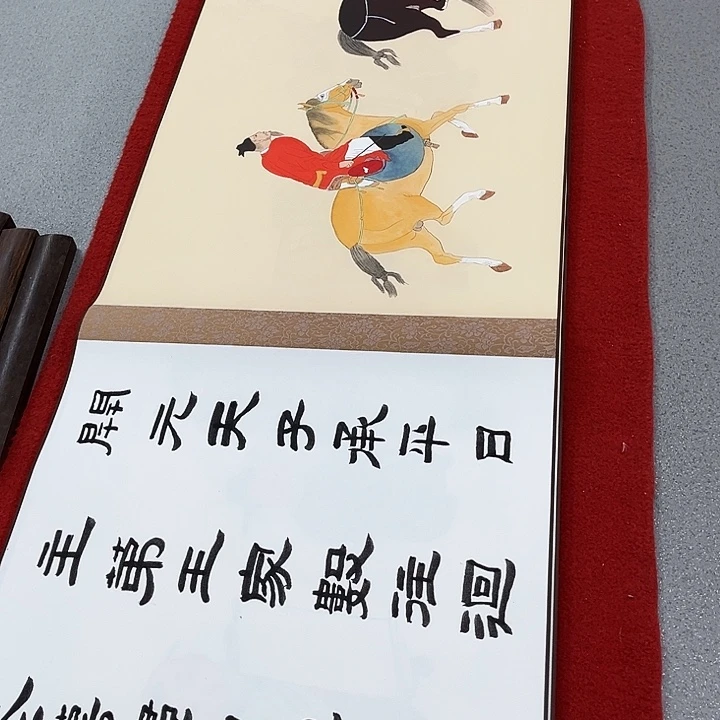 開元天子承平日
主第王家數往迴